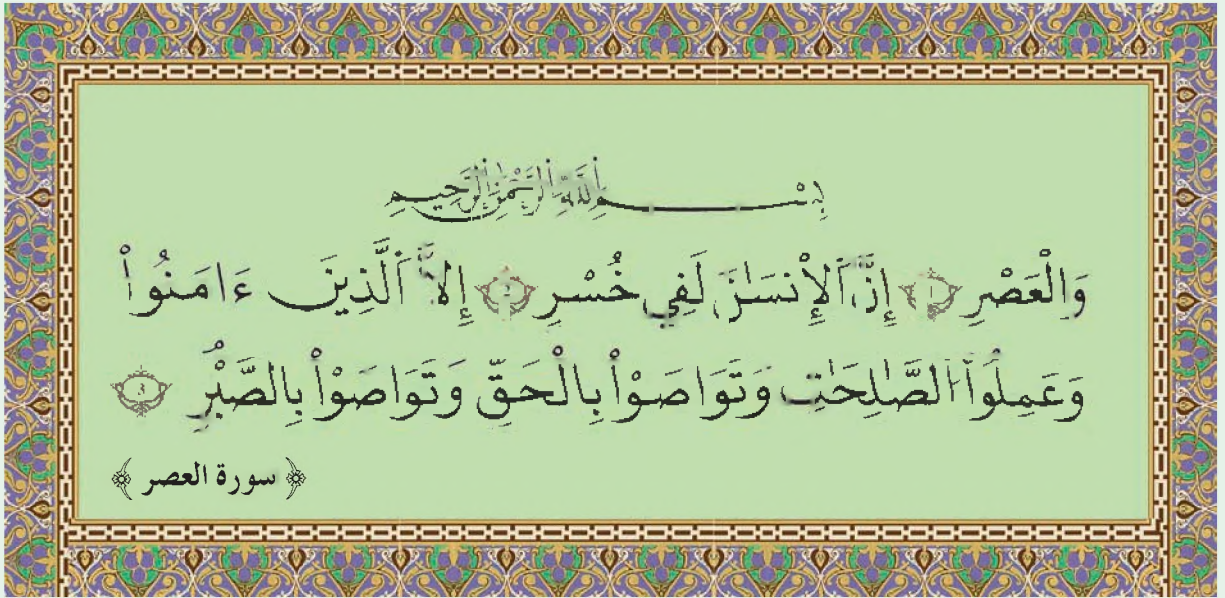 بِسْمِ ٱللَّهِ ٱلرَّحْمَٰنِ ٱلرَّحِيمِ
وَالْعَصْرِ ١ إِنَّ ٱلْإِنسَٰنَ لَفِي خُسْرٍ ٢ إِلَّا ٱلَّذِينَ ءَامَنُواْ
وَعَمِلُواْ ٱلصَّٰلِحَٰتِ وَتَوَاصَوْاْ بِالْحَقِّ وَتَوَاصَوْاْ بِالصَّبْرِ ٣
﴿ سورة العصر ﴾